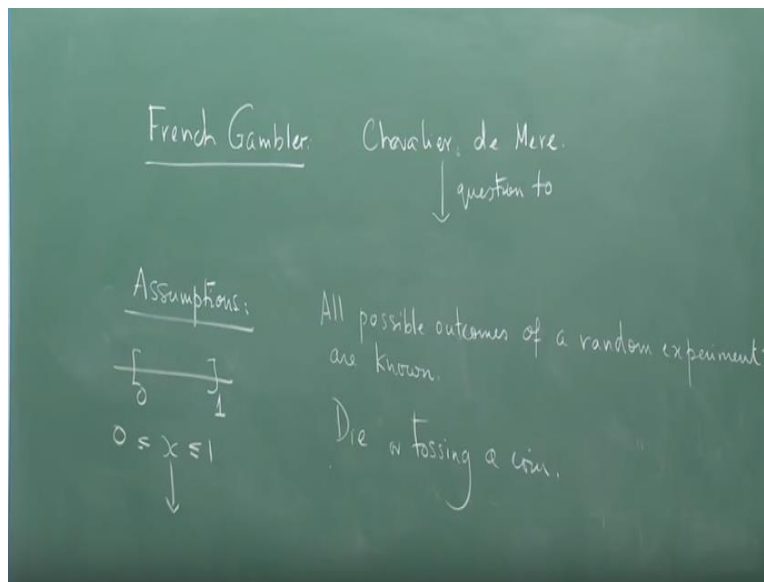 French Gambler. Chevalier de Mere.
question to
Assumptions:
All possible outcomes of a random experiment
are known.
[ ]
0 1
0 ≤ x ≤ 1
Die or Tossing a coin.